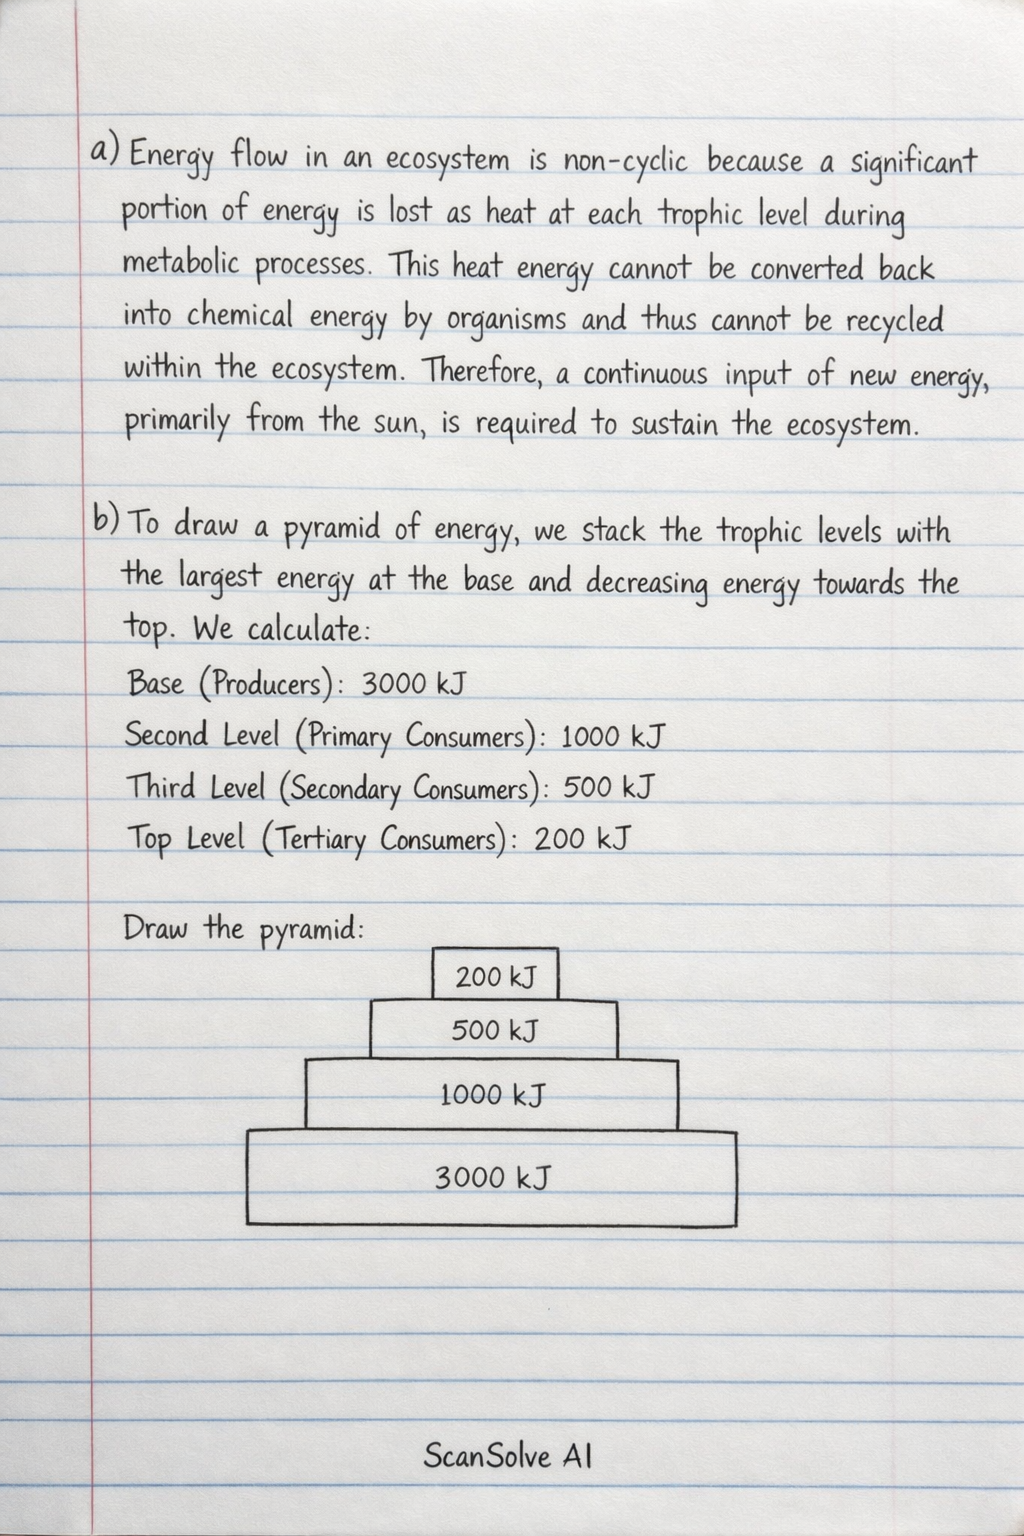 a) Energy flow in an ecosystem is non-cyclic because a significant
portion of energy is lost as heat at each trophic level during
metabolic processes. This heat energy cannot be converted back
into chemical energy by organisms and thus cannot be recycled
within the ecosystem. Therefore, a continuous input of new energy,
primarily from the sun, is required to sustain the ecosystem.
b) To draw a pyramid of energy, we stack the trophic levels with
the largest energy at the base and decreasing energy towards the
top. We calculate:
Base (Producers): 3000 kJ
Second Level (Primary Consumers): 1000 kJ
Third Level (Secondary Consumers): 500 kJ
Top Level (Tertiary Consumers): 200 kJ
Draw the pyramid:
200 kJ
500 kJ
1000 kJ
3000 kJ
ScanSolve AI